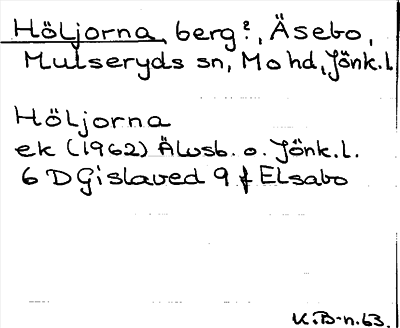 Höljorna, berg?, Äsebo,
Mulseryds sn, Mo hd, Jönk.l
Höljorna
ek (1962) Älvsb. o. Jönk.l.
6 D Gislaved 9 f Elsabo
K.B-n.63.